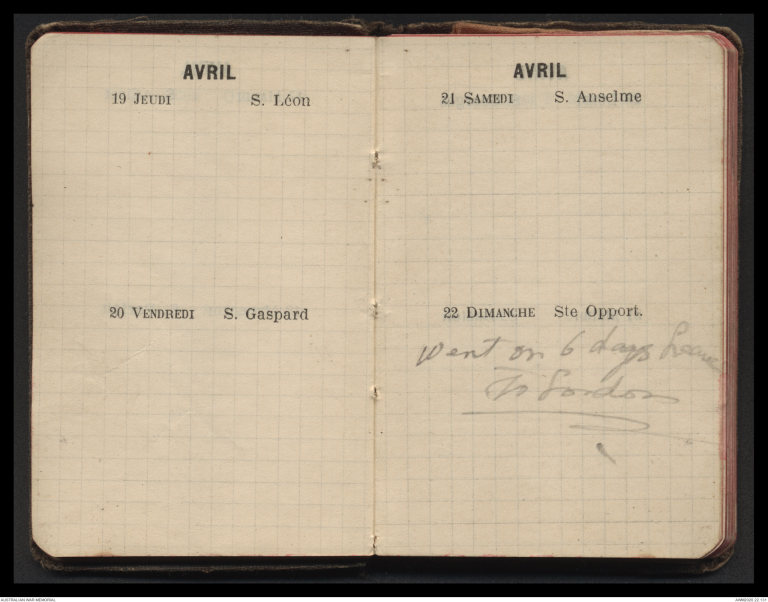 AVRIL
19 JEUDI S. Léon
20 VENDREDI S. Gaspard
AVRIL
21 SAMEDI S. Anselme
22 DIMANCHE Ste Opport.
Went on 6 days Leave
To London
AUSTRALIAN WAR MEMORIAL